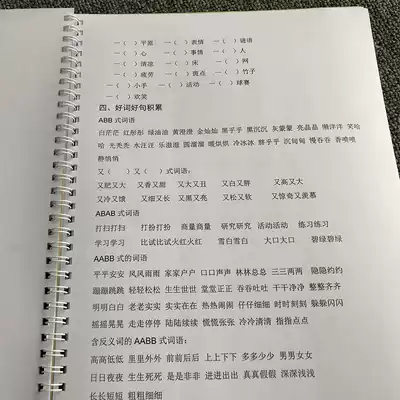 一（ ）平原 一（ ）表情 一（ ）谜语
一（ ）心 一（ ）事情 一（ ）人
一（ ）清凉 一（ ）床 一（ ）网
一（ ）疲劳 一（ ）斑点 一（ ）竹子
一（ ）小手 一（ ）活动 一（ ）球赛
一（ ）欢笑
四、好词好句积累
ABB 式词语
白茫茫 红彤彤 绿油油 黄澄澄 金灿灿 黑乎乎 黑沉沉 灰蒙蒙 亮晶晶 懒洋洋 笑哈
哈 光秃秃 水汪汪 乐滋滋 圆溜溜 暖烘烘 冷冰冰 胖乎乎 沉甸甸 慢吞吞 香喷喷
静悄悄
又（ ）又（ ）式词语:
又肥又大 又香又甜 又大又丑 又白又胖 又高又大
又冷又饿 又细又长 又黑又亮 又松又软 又惊奇又羡慕
ABAB 式词语
打扫打扫 打扮打扮 商量商量 研究研究 活动活动 练习练习
学习学习 比试比试火红火红 雪白雪白 大口大口 碧绿碧绿
AABB 式的词语
平平安安 风风雨雨 家家户户 口口声声 林林总总 三三两两 隐隐约约
蹦蹦跳跳 轻轻松松 生生世世 堂堂正正 吞吞吐吐 干干净净 整整齐齐
明明白白 老老实实 实实在在 热热闹闹 仔仔细细 时时刻刻 躲躲闪闪
摇摇晃晃 走走停停 陆陆续续 慌慌张张 冷冷清清 指指点点
含反义词的 AABB 式词语:
高高低低 里里外外 前前后后 上上下下 多多少少 男男女女
日日夜夜 生生死死 是是非非 进进出出 真真假假 深深浅浅
长长短短 粗粗细细